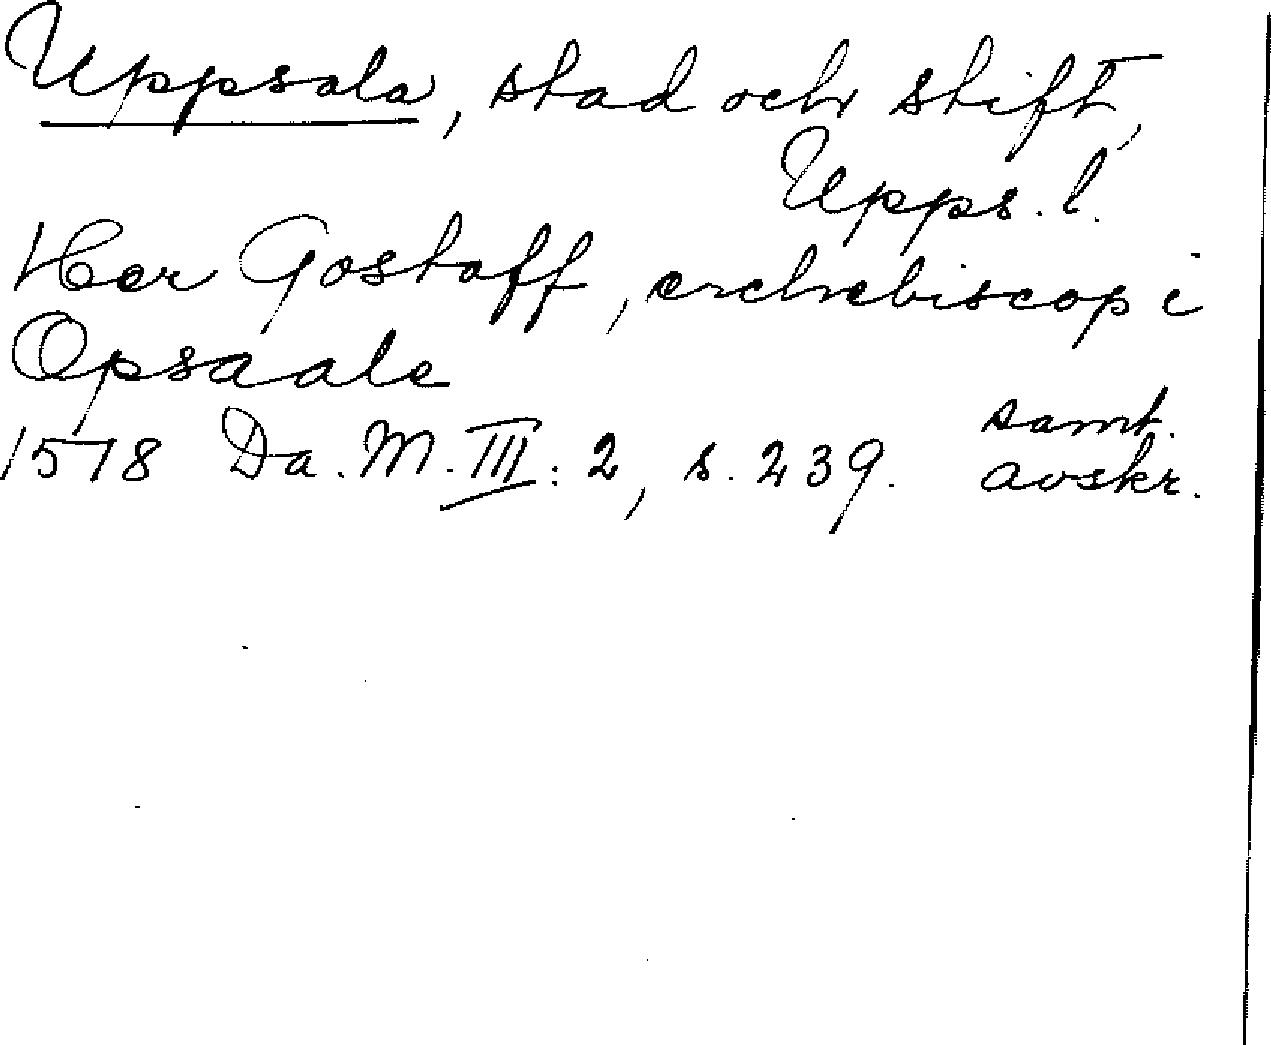 Uppsala, stad och stift,
Upps. l.
Her Gostaff, erchebiscop i
Opsaale
1518 Da. M. III: 2, s. 239. samt. avskr.